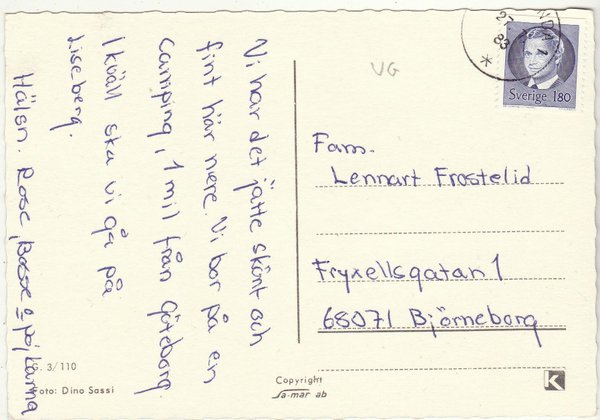 Vi har det jätte skönt och
fint här nere. Vi bor på en
camping, 1 mil från Göteborg.
I kväll ska vi gå på
Liseberg.
Hälsn. Rose, Bosse o pojkarna
VG
Sverige 180
83
Fam.
Lennart Frostelid
Fryxellsgatan 1
68071 Björneborg
3/110
Foto: Dino Sassi
Copyright
Sa-mar ab
K